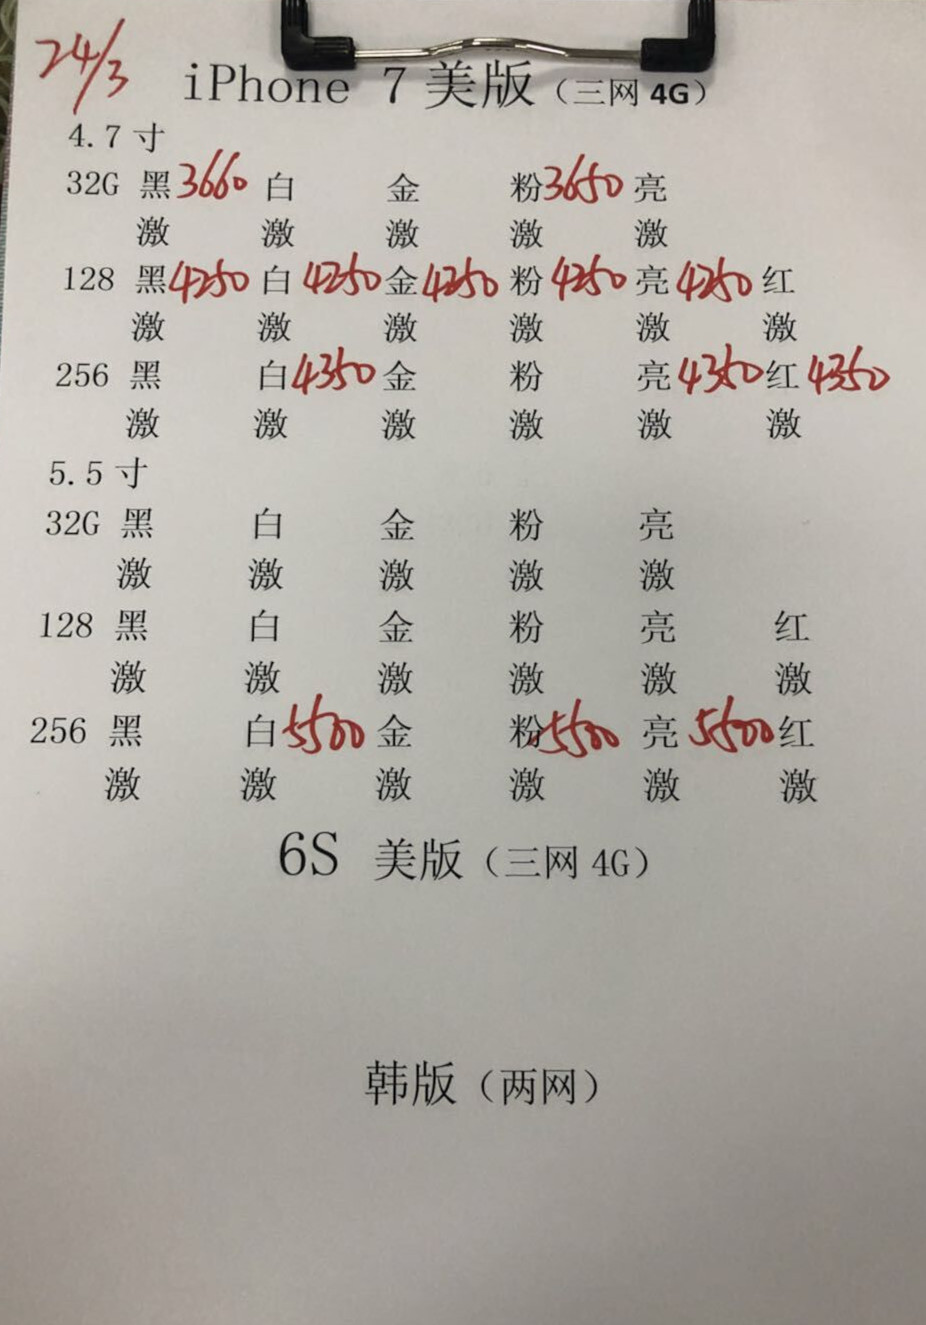 24/3
iPhone 7 美版（三网 4G）
4.7 寸
32G 黑 3660 白 金 粉 3650 亮
激 激 激 激 激
128 黑 4250 白 4250 金 4250 粉 4250 亮 4250 红
激 激 激 激 激 激
256 黑 白 4350 金 粉 亮 4350 红 4350
激 激 激 激 激 激
5.5 寸
32G 黑 白 金 粉 亮
激 激 激 激 激
128 黑 白 金 粉 亮 红
激 激 激 激 激 激
256 黑 白 5500 金 粉 5500 亮 5500 红
激 激 激 激 激 激
6S 美版（三网 4G）
韩版（两网）